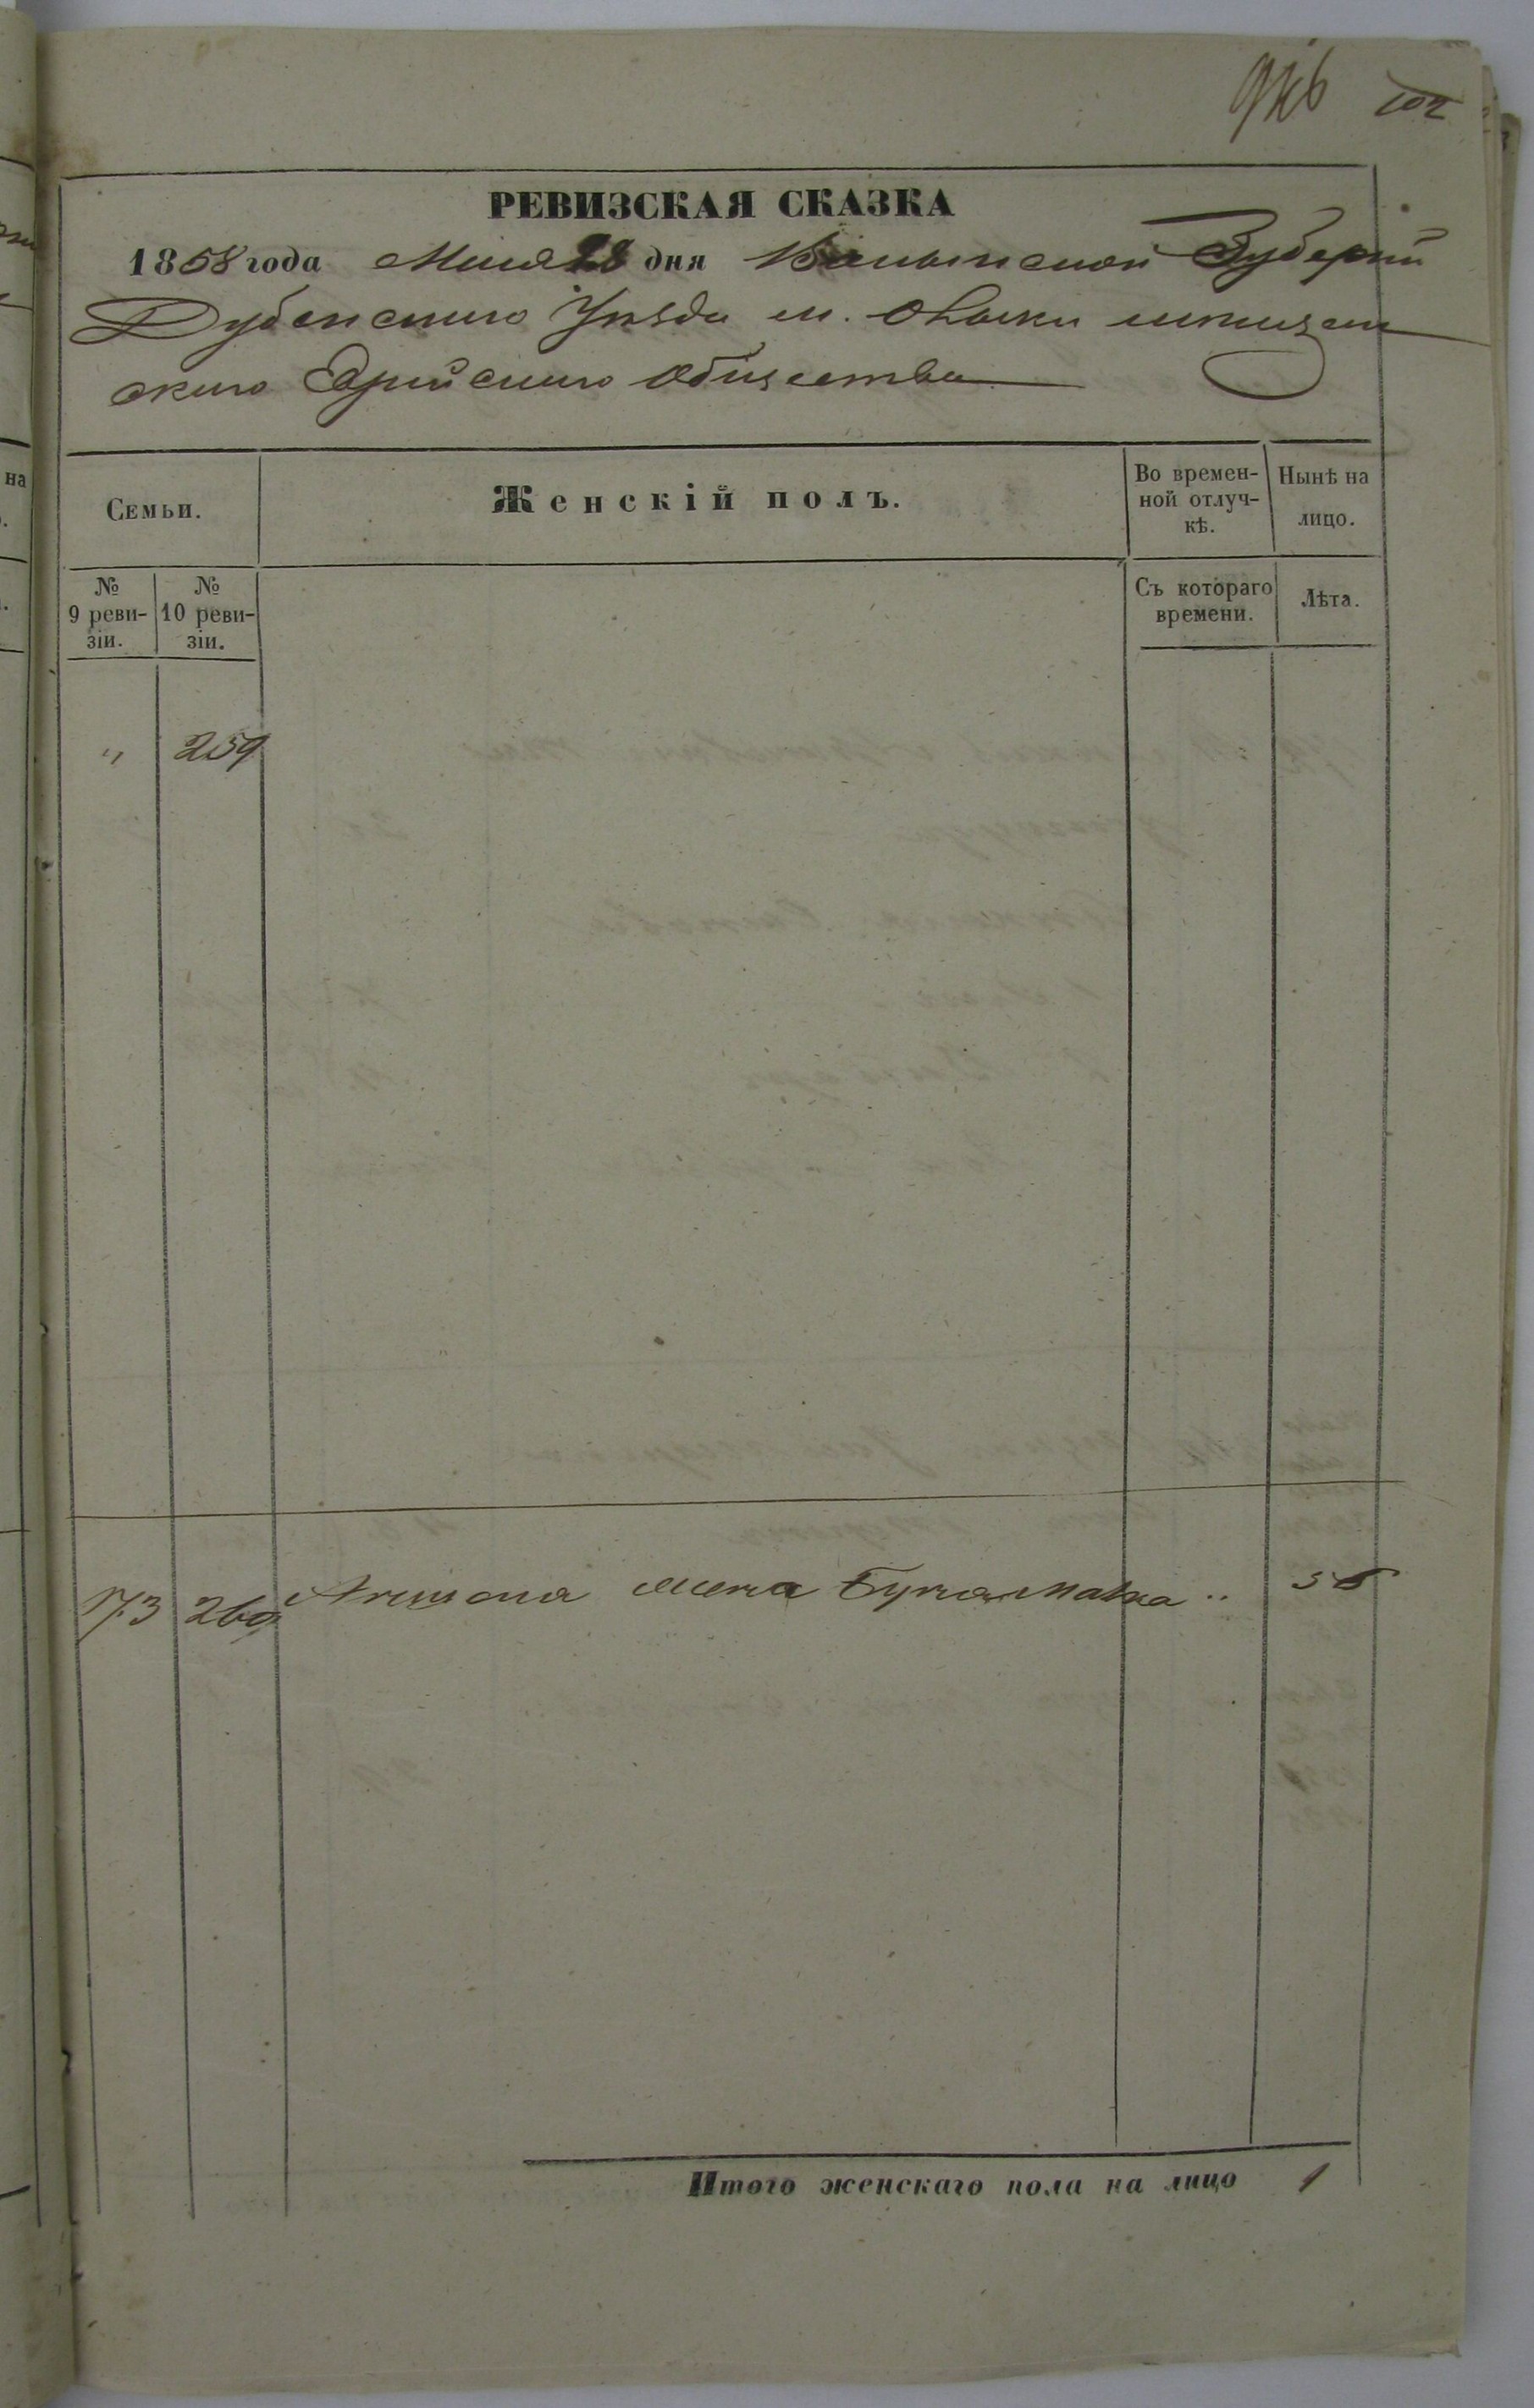 102
РЕВИЗСКАЯ СКАЗКА
1858 года Мая 28 дня Волынской Губернии
Дубенского Уѣзда м. Олыки мѣщан
ского Еврейского Общества
Семьи.
Женскій полъ.
Во времен-
ной отлуч-
кѣ.
Нынѣ на
лицо.
№
9 реви-
зіи.
№
10 реви-
зіи.
Съ котораго
времени.
Лѣта.
" 259
173 260 жена
Итого женскаго пола на лицо 1
на